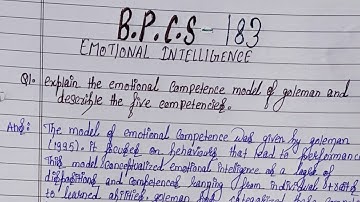 B.P.C.S - 183
EMOTIONAL INTELLIGENCE
Q1. explain the emotional competence model of goleman and
describle the five competencies.
Ans: The model of emotional competence was given by goleman
(1995). it focused on behaviours that lead to performance
This model conceptualized emotional intelligence as a
dispositions and competences ranging from individual traits
to learned abilities. goleman had categorized